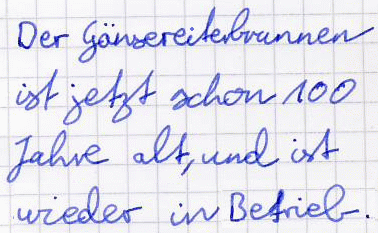 Der Gänsereiterbrunnen
ist jetzt schon 100
Jahre alt, und ist
wieder in Betrieb.